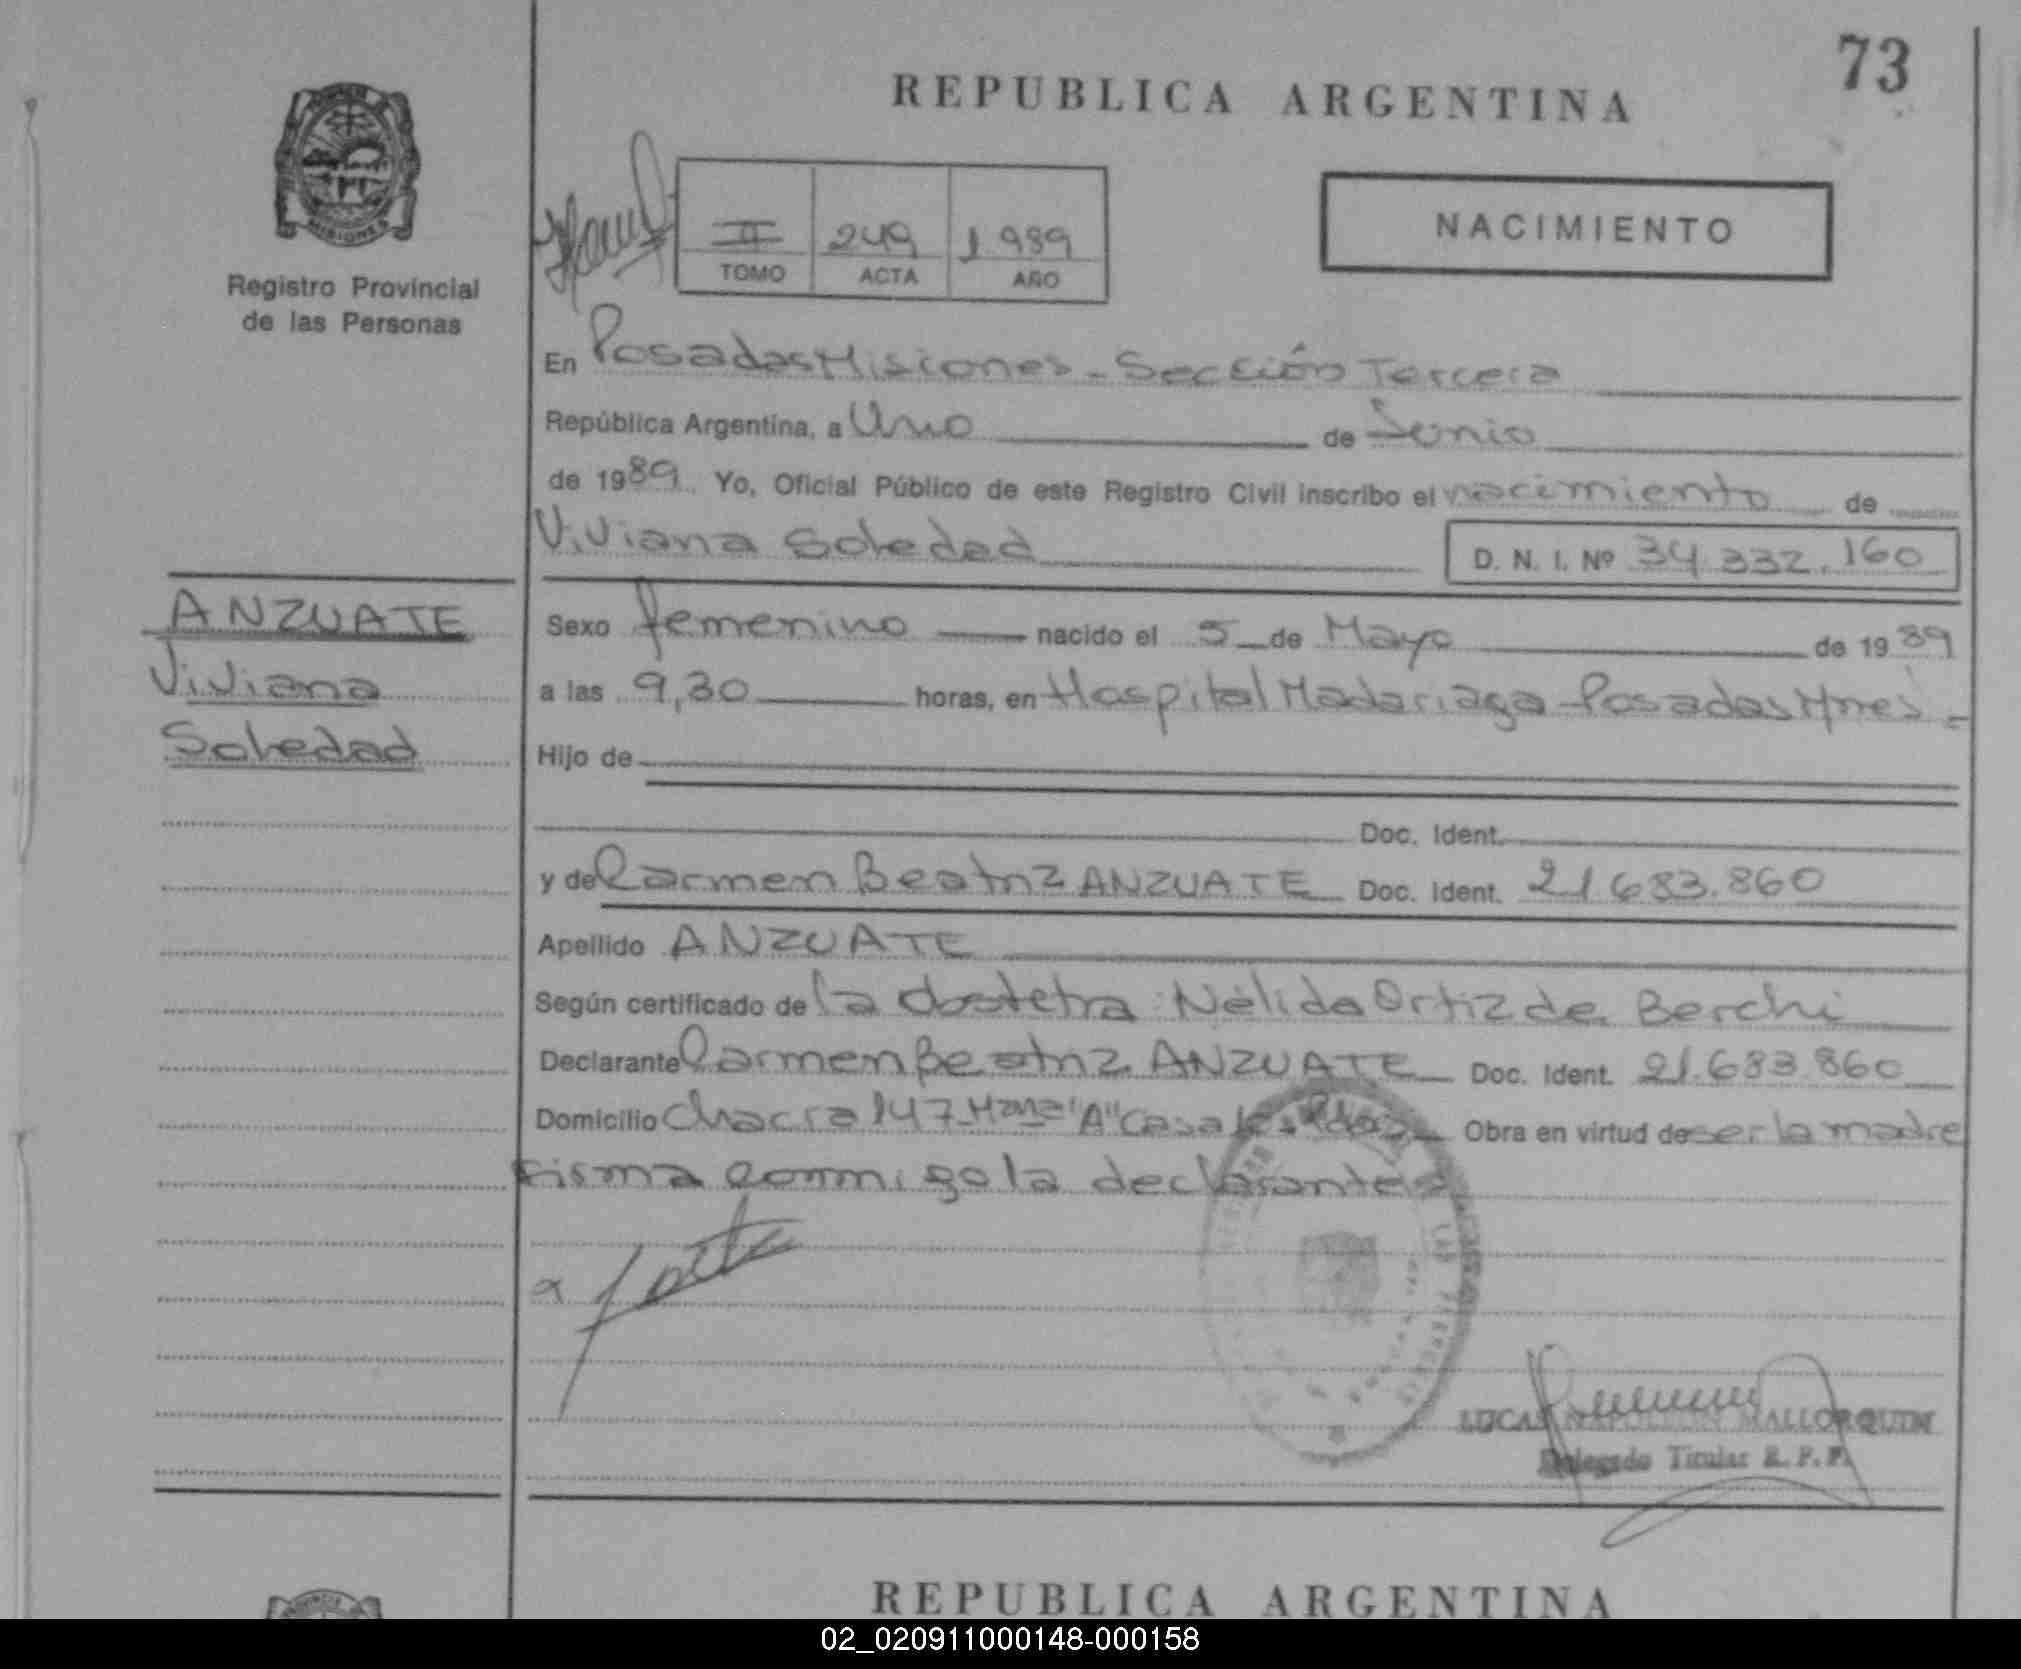 73
REPUBLICA ARGENTINA
MISIONES
Registro Provincial
de las Personas
II 249 1.989
TOMO ACTA AÑO
NACIMIENTO
En Posadas Misiones - Sección Tercera
República Argentina, a Uno de Junio
de 1989 Yo, Oficial Público de este Registro Civil inscribo el nacimiento de
Viviana Soledad D. N. I. Nº 34.332.160
ANZUATE
Viviana
Soledad
Sexo femenino nacido el 5 de Mayo de 1989
a las 9,30 horas, en Hospital Madariaga - Posadas Mnes -
Hijo de
Doc. Ident.
y de Carmen Beatriz ANZUATE Doc. Ident. 21.683.860
Apellido ANZUATE
Según certificado de la obstetra: Nélida Ortiz de Berchi
Declarante Carmen Beatriz ANZUATE Doc. Ident. 21.683.860
Domicilio Chacra 147 - Mana "A" Casa Pdas - Obra en virtud de ser la madre
firma conmigo la declarante
LUCAS NAPOLEON MALLORQUIN
Delegado Titular R. P. P.
REPUBLICA ARGENTINA
02_020911000148-000158